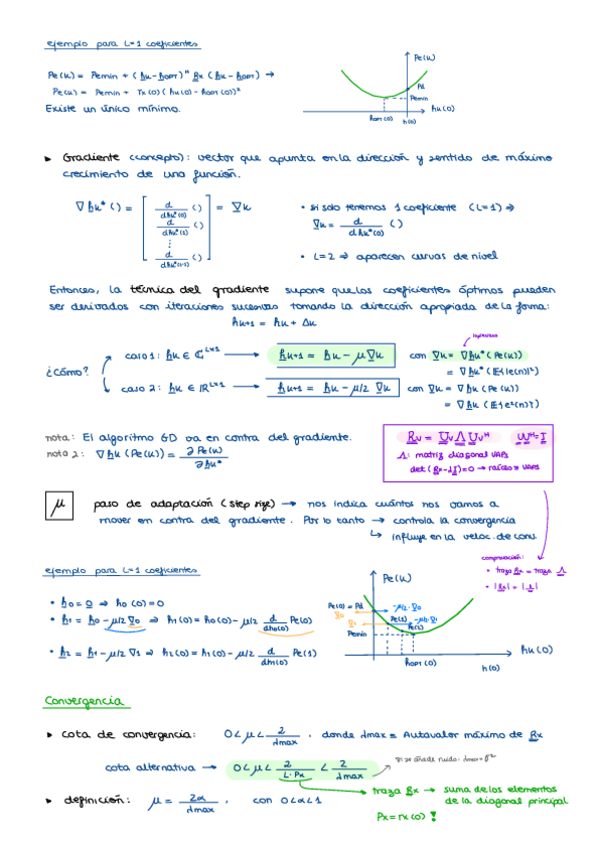 ejemplo para L=1 coeficientes
Pe(k) = Pemin + (h̲k - h̲OPT)ᴴ R̲x (h̲k - h̲OPT) →
Pe(k) = Pemin + rx(0) (hk(0) - hOPT(0))²
Existe un único mínimo.
Pe(k)
Pd
Pemin
hk(0)
hOPT(0)
h(0)
► Gradiente (concepto): vector que apunta en la dirección y sentido de máximo
crecimiento de una función.
∇h̲k* ( ) = [ d/dhk*(0) ( ) d/dhk*(1) ( ) ⋮ d/dhk*(L-1) ( ) ] = ∇̲k
• si solo tenemos 1 coeficiente (L=1) ⇒
∇̲k = d/dhk*(0) ( )
• L=2 ⇒ aparecen curvas de nivel
Entonces, la técnica del gradiente supone que los coeficientes óptimos pueden
ser derivados con iteraciones sucesivas tomando la dirección apropiada de la forma:
h̲k+1 = h̲k + Δk
¿Cómo?
caso 1: h̲k ∈ ℂᴸˣ¹ → h̲k+1 = h̲k - μ∇̲k con ∇̲k = ∇h̲k* (Pe(k))
= ∇h̲k* (E{|e(n)|²})
caso 2: h̲k ∈ ℝᴸˣ¹ → h̲k+1 = h̲k - μ/2 ∇̲k con ∇̲k = ∇h̲k (Pe(k))
= ∇h̲k (E{e²(n)})
nota: El algoritmo GD va en contra del gradiente.
nota 2: ∇h̲k (Pe(k)) = ∂Pe(k)/∂h̲k*
R̲v = U̲v Λ̲ U̲vᴴ U̲U̲ᴴ = I̲
Λ̲: matriz diagonal VAPs
det(R̲x - λI̲) = 0 → raíces ≡ VAPs
μ
paso de adaptación (step size) → nos indica cuántos nos vamos a
mover en contra del gradiente. Por lo tanto → controla la convergencia
↳ influye en la veloc. de conv.
comprobación:
• traza R̲x = traza Λ̲
• |R̲x| = |Λ̲|
ejemplo para L=1 coeficientes
• h̲0 = 0̲ ⇒ h0(0) = 0
• h̲1 = h̲0 - μ/2 ∇̲0 ⇒ h1(0) = h0(0) - μ/2 d/dh0(0) Pe(0)
• h̲2 = h̲1 - μ/2 ∇̲1 ⇒ h2(0) = h1(0) - μ/2 d/dh1(0) Pe(1)
Pe(k)
Pe(0) = Pd
-μ/2·∇̲0
∇̲0
∇̲1
Pe(1)
-μ/2·∇̲1
Pe(2)
Pemin
hk(0)
hOPT(0)
h(0)
Convergencia
► cota de convergencia: 0 < μ < 2/λmax , donde λmax ≡ Autovalor máximo de R̲x
cota alternativa → 0 < μ < 2/(L·Px) < 2/λmax
si se añade ruido: λmax+σ²
traza R̲x → suma de los elementos
de la diagonal principal
Px = rx(0) !
► definición: μ = 2α/λmax , con 0<α<1